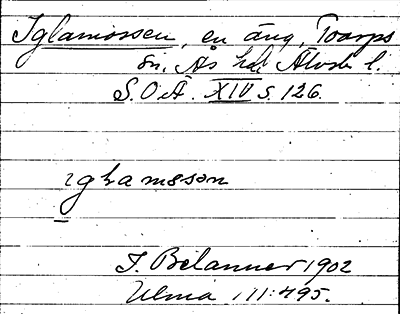 Iglamossen, en äng, Toarps
sn, Ås hd Älvsb l.
S.O.Ä. XIV s. 126.
ɩglamosson
J. Belanner 1902
Ulma 111:495.